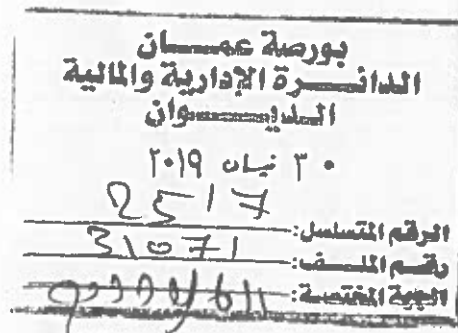 بورصة عمان
الدائرة الإدارية والمالية
الديوان
٣٠ نيسان ٢٠١٩
الرقم المتسلسل: 2517
رقم الملف: 31071
الجهة المختصة: